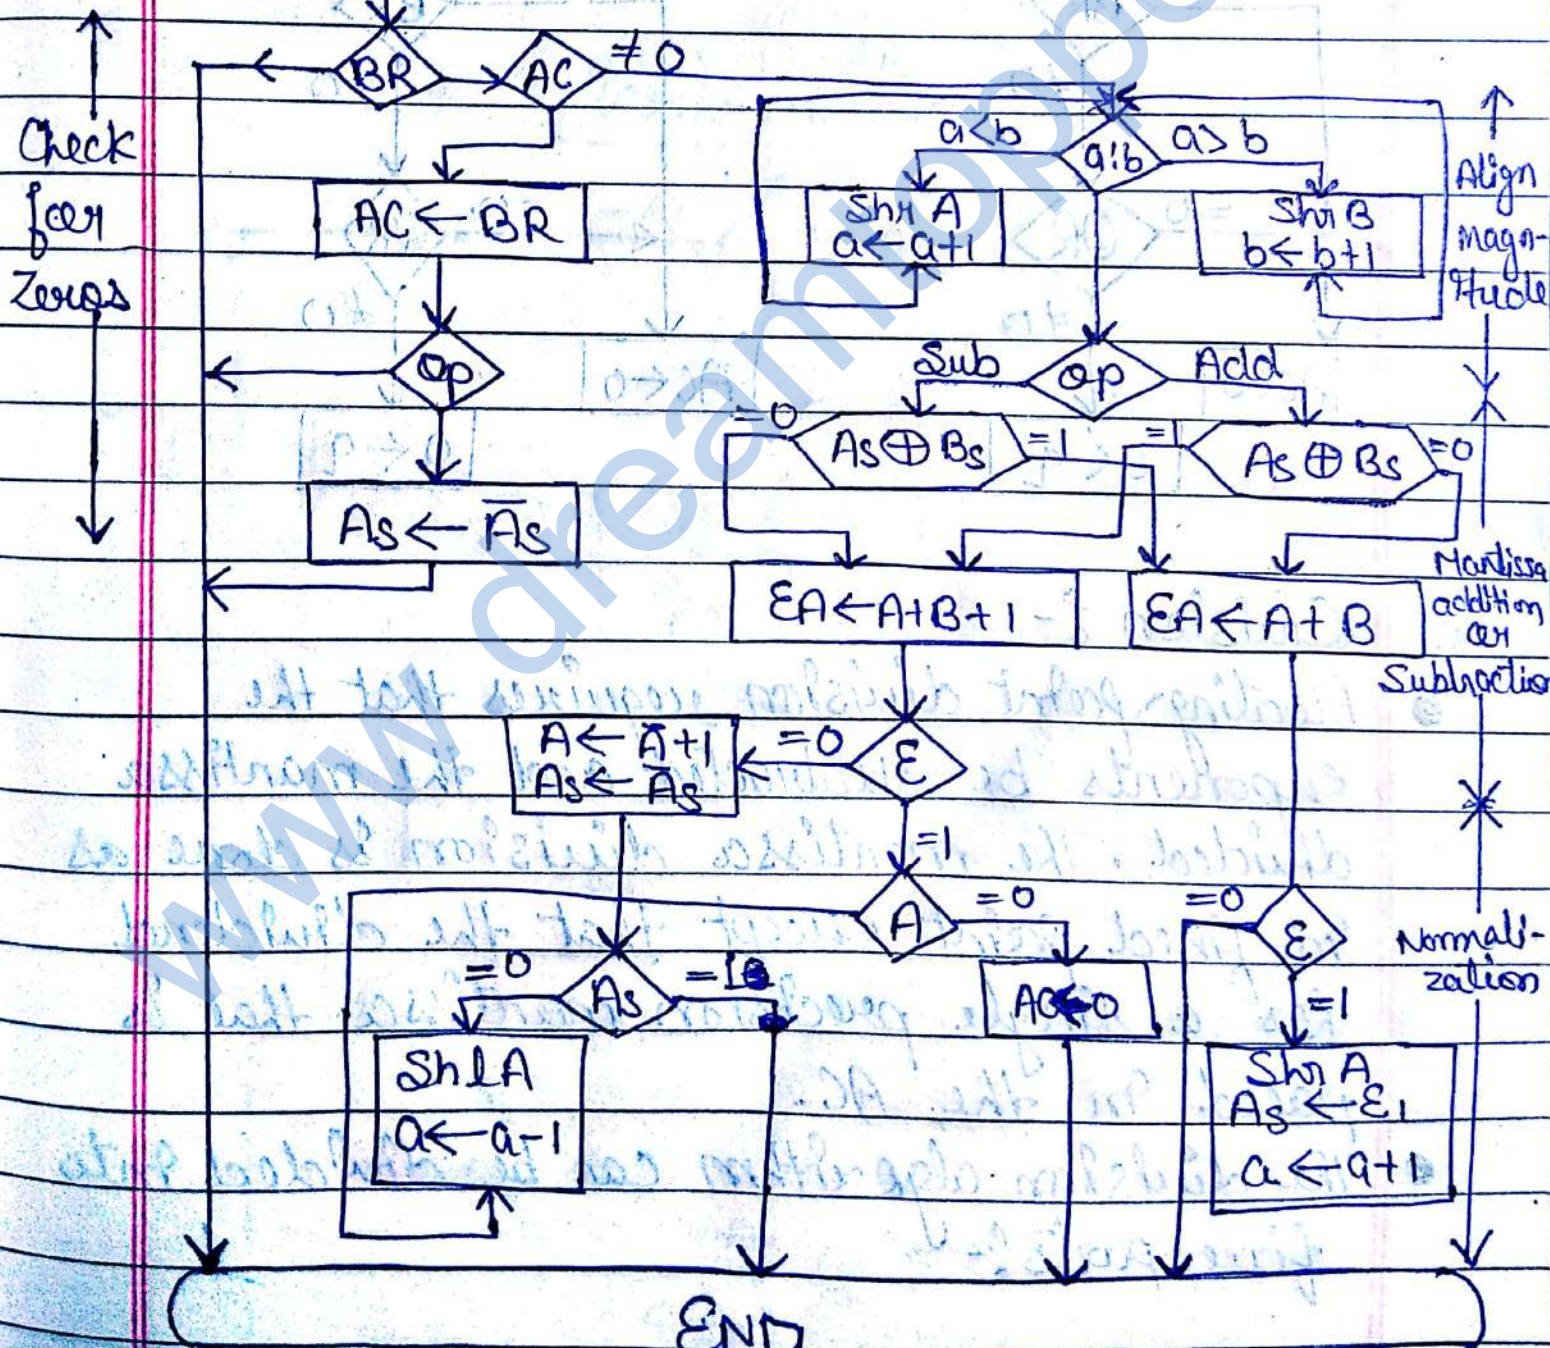 BR
AC
≠0
Check
for
Zeros
AC ← BR
Op
As ← A̅s
a<b
a:b
a>b
Shr A
a ← a+1
Shr B
b ← b+1
Align
magn-
itude
Sub
Op
Add
=0
As ⊕ Bs
=1
=1
As ⊕ Bs
=0
EA ← A+B+1
EA ← A+B
Mantissa
addition
or
Subtraction
A ← A̅+1
As ← A̅s
=0
E
=1
A
=0
=0
E
=1
Normali-
zation
=0
As
=1
AC←0
Shl A
a ← a-1
Shr A
As ← E1
a ← a+1
END